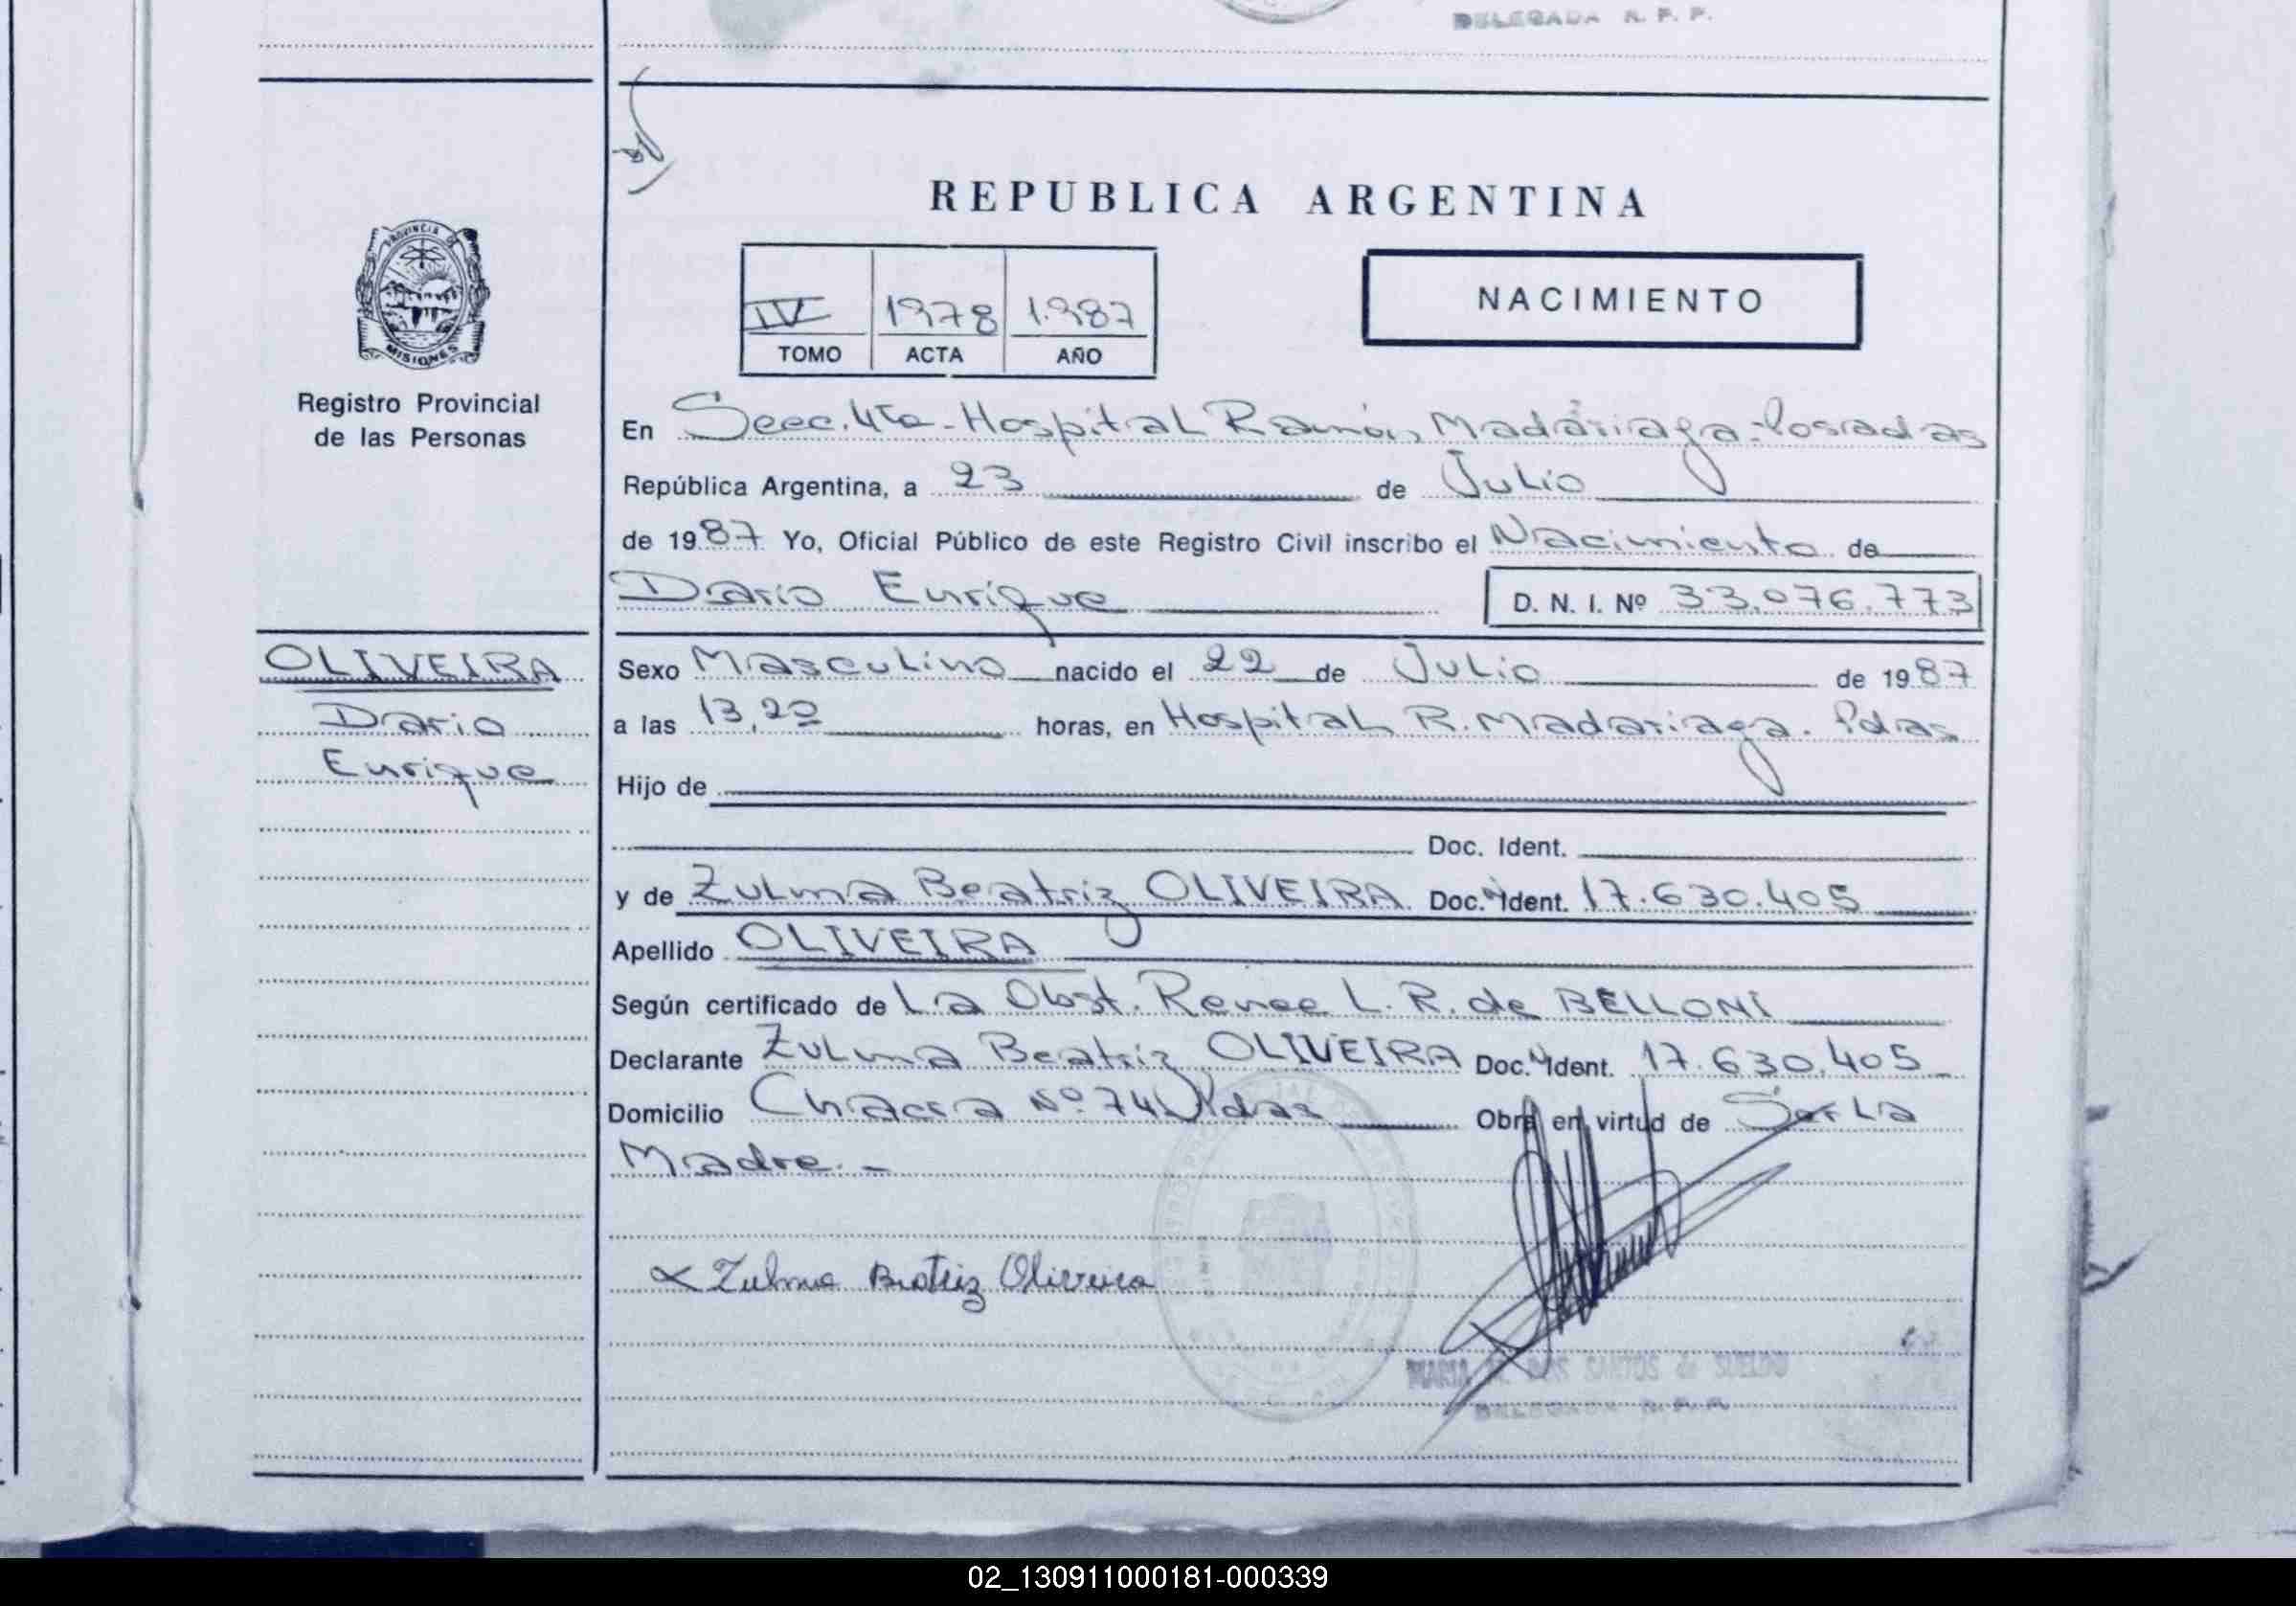 DELEGADA R. P. P.
REPUBLICA ARGENTINA
PROVINCIA DE
MISIONES
Registro Provincial
de las Personas
IV 1978 1.987
TOMO ACTA AÑO
NACIMIENTO
En Secc. 4ta - Hospital Ramón Madariaga - Posadas
República Argentina, a 23 de Julio
de 1987 Yo, Oficial Público de este Registro Civil inscribo el Nacimiento de
Dario Enrique D. N. I. Nº 33.076.773
OLIVEIRA
Dario
Enrique
Sexo Masculino nacido el 22 de Julio de 1987
a las 13,20 horas, en Hospital R. Madariaga. Pdas
Hijo de
Doc. Ident.
y de Zulma Beatriz OLIVEIRA Doc. Ident. 17.630.405
Apellido OLIVEIRA
Según certificado de La Obst. Renee L. R. de BELLONI
Declarante Zulma Beatriz OLIVEIRA Doc. Ident. 17.630.405
Domicilio Chacra Nº 74 Pdas Obra en virtud de Ser La
Madre. -
Zulma Beatriz Oliveira
MARIA DOS SANTOS de SUELDO
DELEGADA R. P. P.
02_130911000181-000339